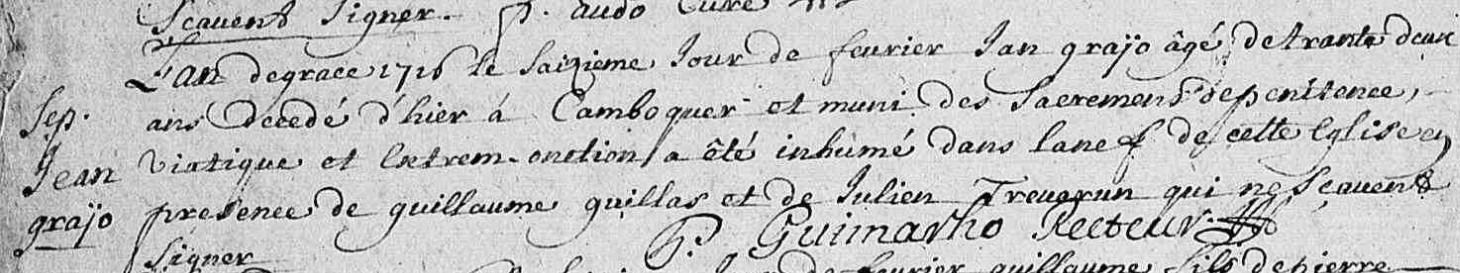 Scavent Signer. p. audo Curé
L'an de grace 1716 le Saizieme Jour de fevrier Jan graÿo âgé de trante deux
Sep. ans decedé d'hier à Camboquer et muni des Sacremens de penitence,
Jean Viatique et Extrem-onction, a êté inhumé dans la nef de cette Eglise en
graÿo presence de guillaume guillas et de Julien Treuegrun qui ne Scavent
Signer G. Guimarho Recteur.
fevrier guillaume fils de pierre